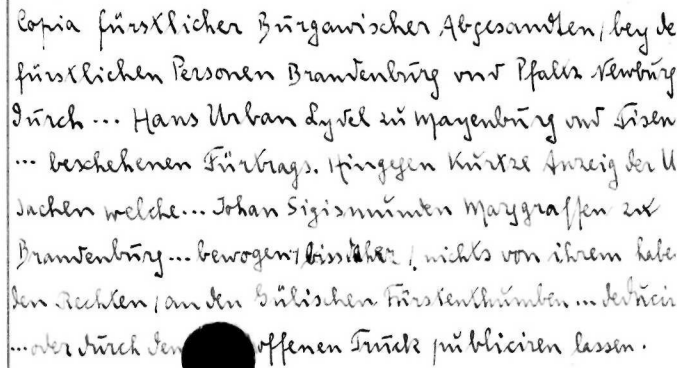 Copia fürstlicher Burgawischer Abgesandten / bey de
fürstlichen Personen Brandenburg vnd Pfaltz Newburg
durch ... Hans Urban Lydel zu Mayenburg vnd Tisen
... beschehenen Fürtrags. Hingegen Kurtze Anzeig der U
sachen welche ... Johan Sigismunden Marggraffen zu
Brandenburg ... bewogen / bissdaher / nichts von ihrem habe
den Rechten / an den Gülischen Fürstenthumben ... deducir
... oder durch den offenen Truck publiciren lassen.